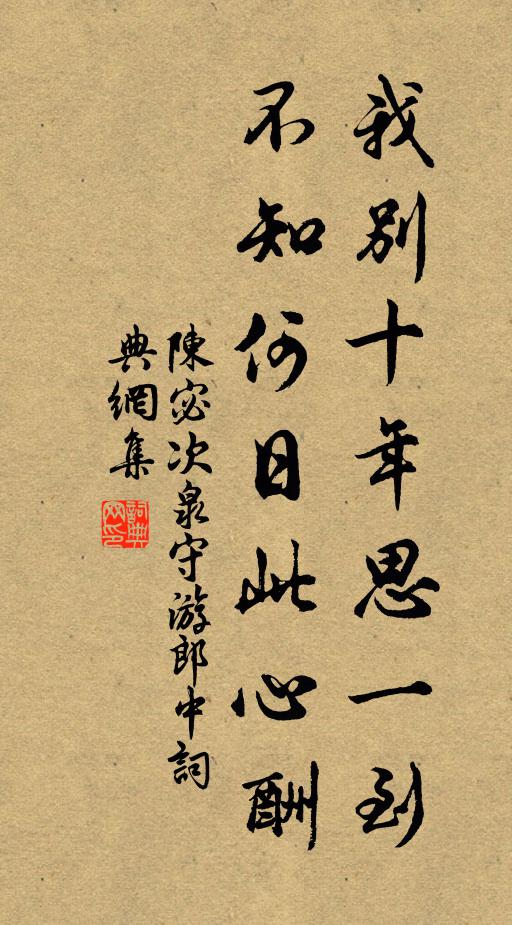 我別十年思一到
不知何日此心酬
陳宓次泉守游郎中詞
典網集
詞典
网印